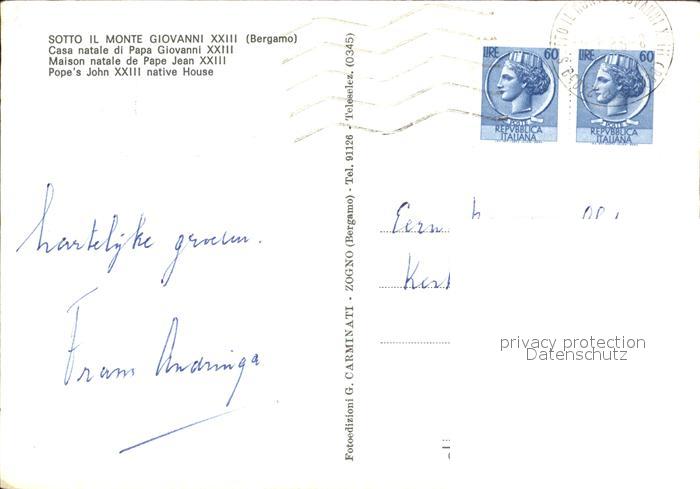 SOTTO IL MONTE GIOVANNI XXIII (Bergamo)
Casa natale di Papa Giovanni XXIII
Maison natale de Pape Jean XXIII
Pope's John XXIII native House
hartelijke groeten.
Frans Andringa
Fotoedizioni G. CARMINATI - ZOGNO (Bergamo) - Tel. 91126 - Teleselez. (0345)
LIRE 60
POSTE
REPVBBLICA
ITALIANA
LIRE 60
POSTE
REPVBBLICA
ITALIANA
Eerw
privacy protection
Datenschutz